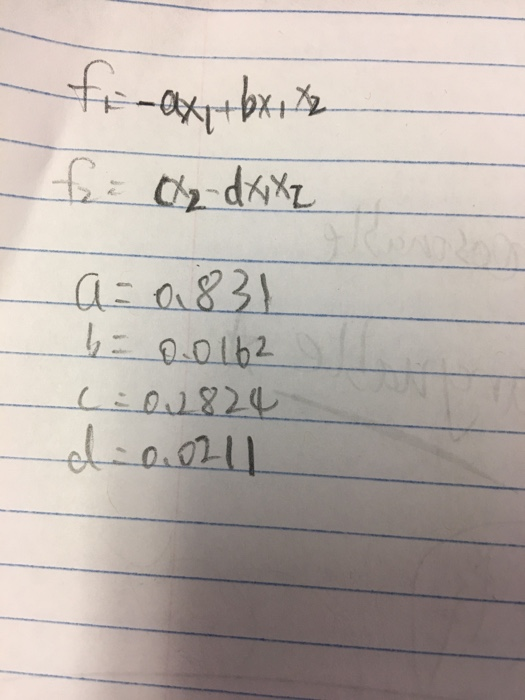 f₁=-ax₁+bx₁x₂
f₂=cx₂-dx₁x₂
a=0.831
b=0.0162
c=0.2824
d=0.0211